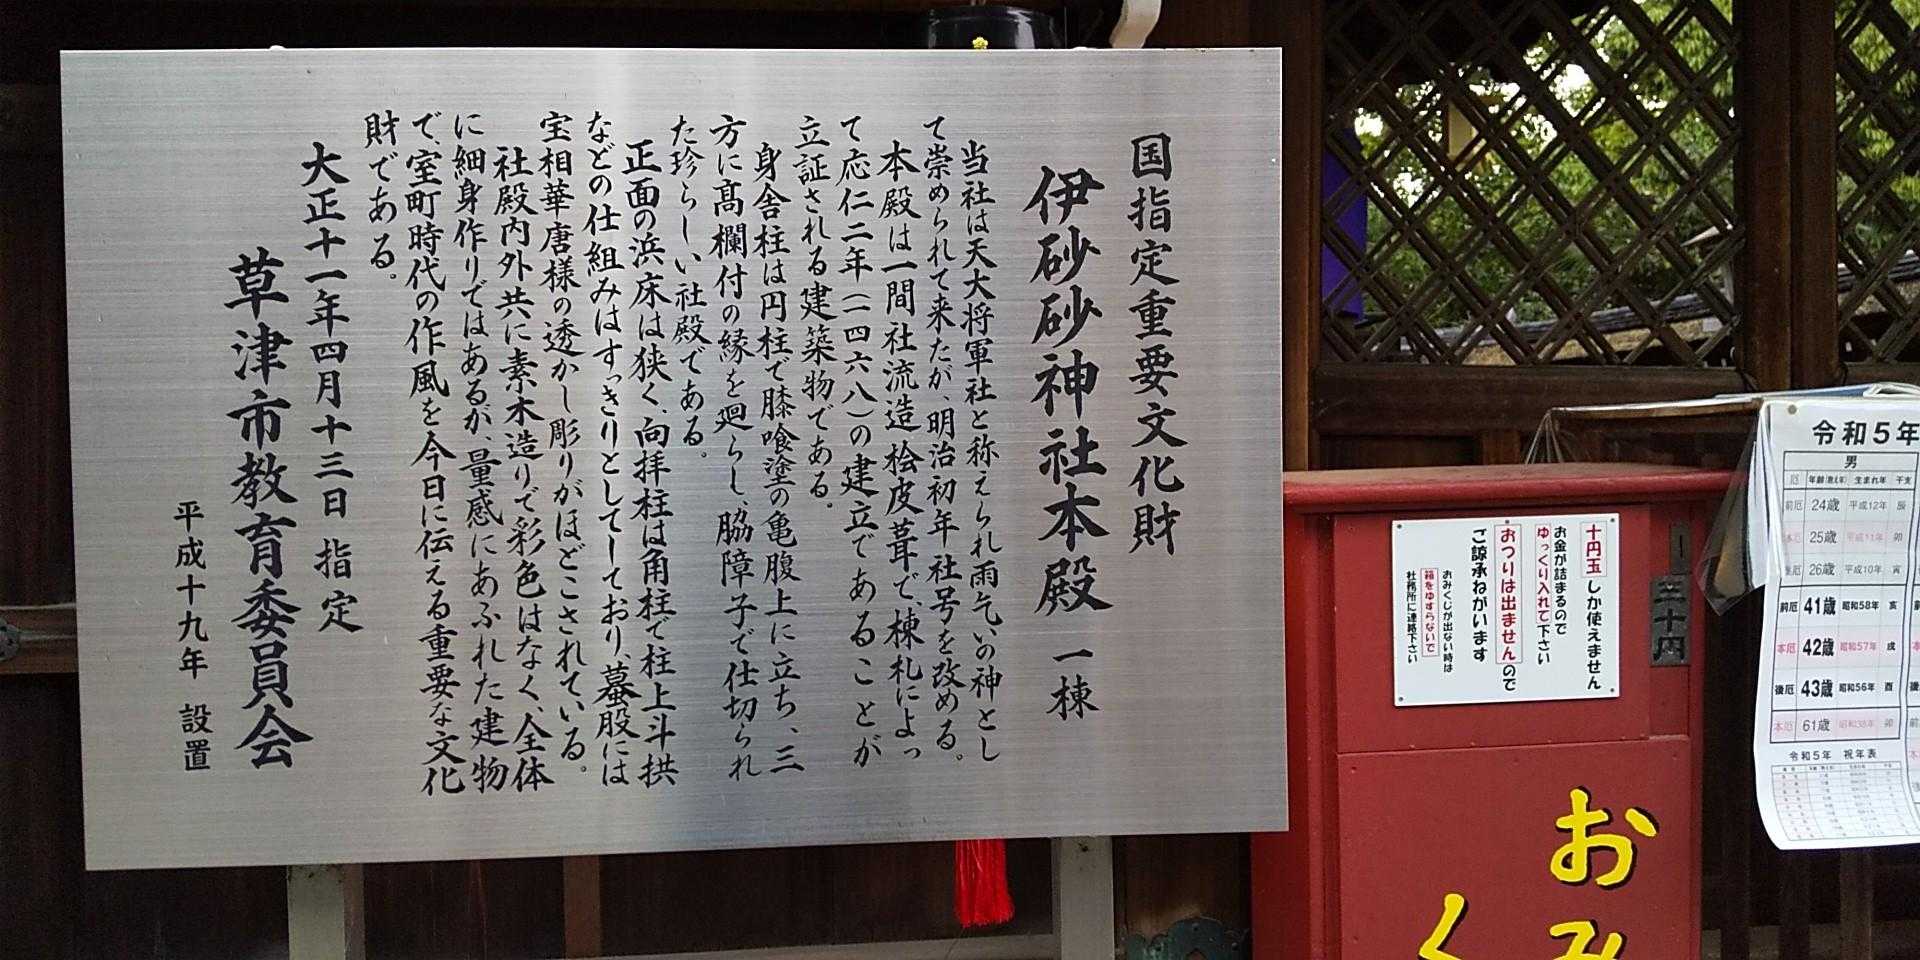 国指定重要文化財
伊砂砂神社本殿 一棟
当社は天大将軍社と称えられ雨乞いの神とし
て崇められて来たが、明治初年社号を改める。
本殿は一間社流造桧皮葺で、棟札によっ
て応仁二年(一四六八)の建立であることが
立証される建築物である。
身舎柱は円柱で膝喰塗の亀腹上に立ち、三
方に高欄付の縁を廻らし、脇障子で仕切られ
た珍らしい社殿である。
正面の浜床は狭く、向拝柱は角柱で柱上斗拱
などの仕組みはすっきりとしており、蟇股には
宝相華唐様の透かし彫りがほどこされている。
社殿内外共に素木造りで彩色はなく、全体
に細身作りではあるが、量感にあふれた建物
で、室町時代の作風を今日に伝える重要な文化
財である。
大正十一年四月十三日 指定
草津市教育委員会
平成十九年 設置
十円玉しか使えません
お金が詰まるので
ゆっくり入れて下さい
おつりは出ませんので
ご諒承ねがいます
おみくじが出ない時は
箱をゆすらないで
社務所に連絡下さい
三十円
おみ
く
令和5年
男
厄 年齢(数え年) 生まれ年 干支
前厄 24歳 平成12年 辰
本厄 25歳 平成11年 卯
後厄 26歳 平成10年 寅
前厄 41歳 昭和58年 亥
本厄 42歳 昭和57年 戌
後厄 43歳 昭和56年 酉
本厄 61歳 昭和38年 卯
令和5年 祝年表